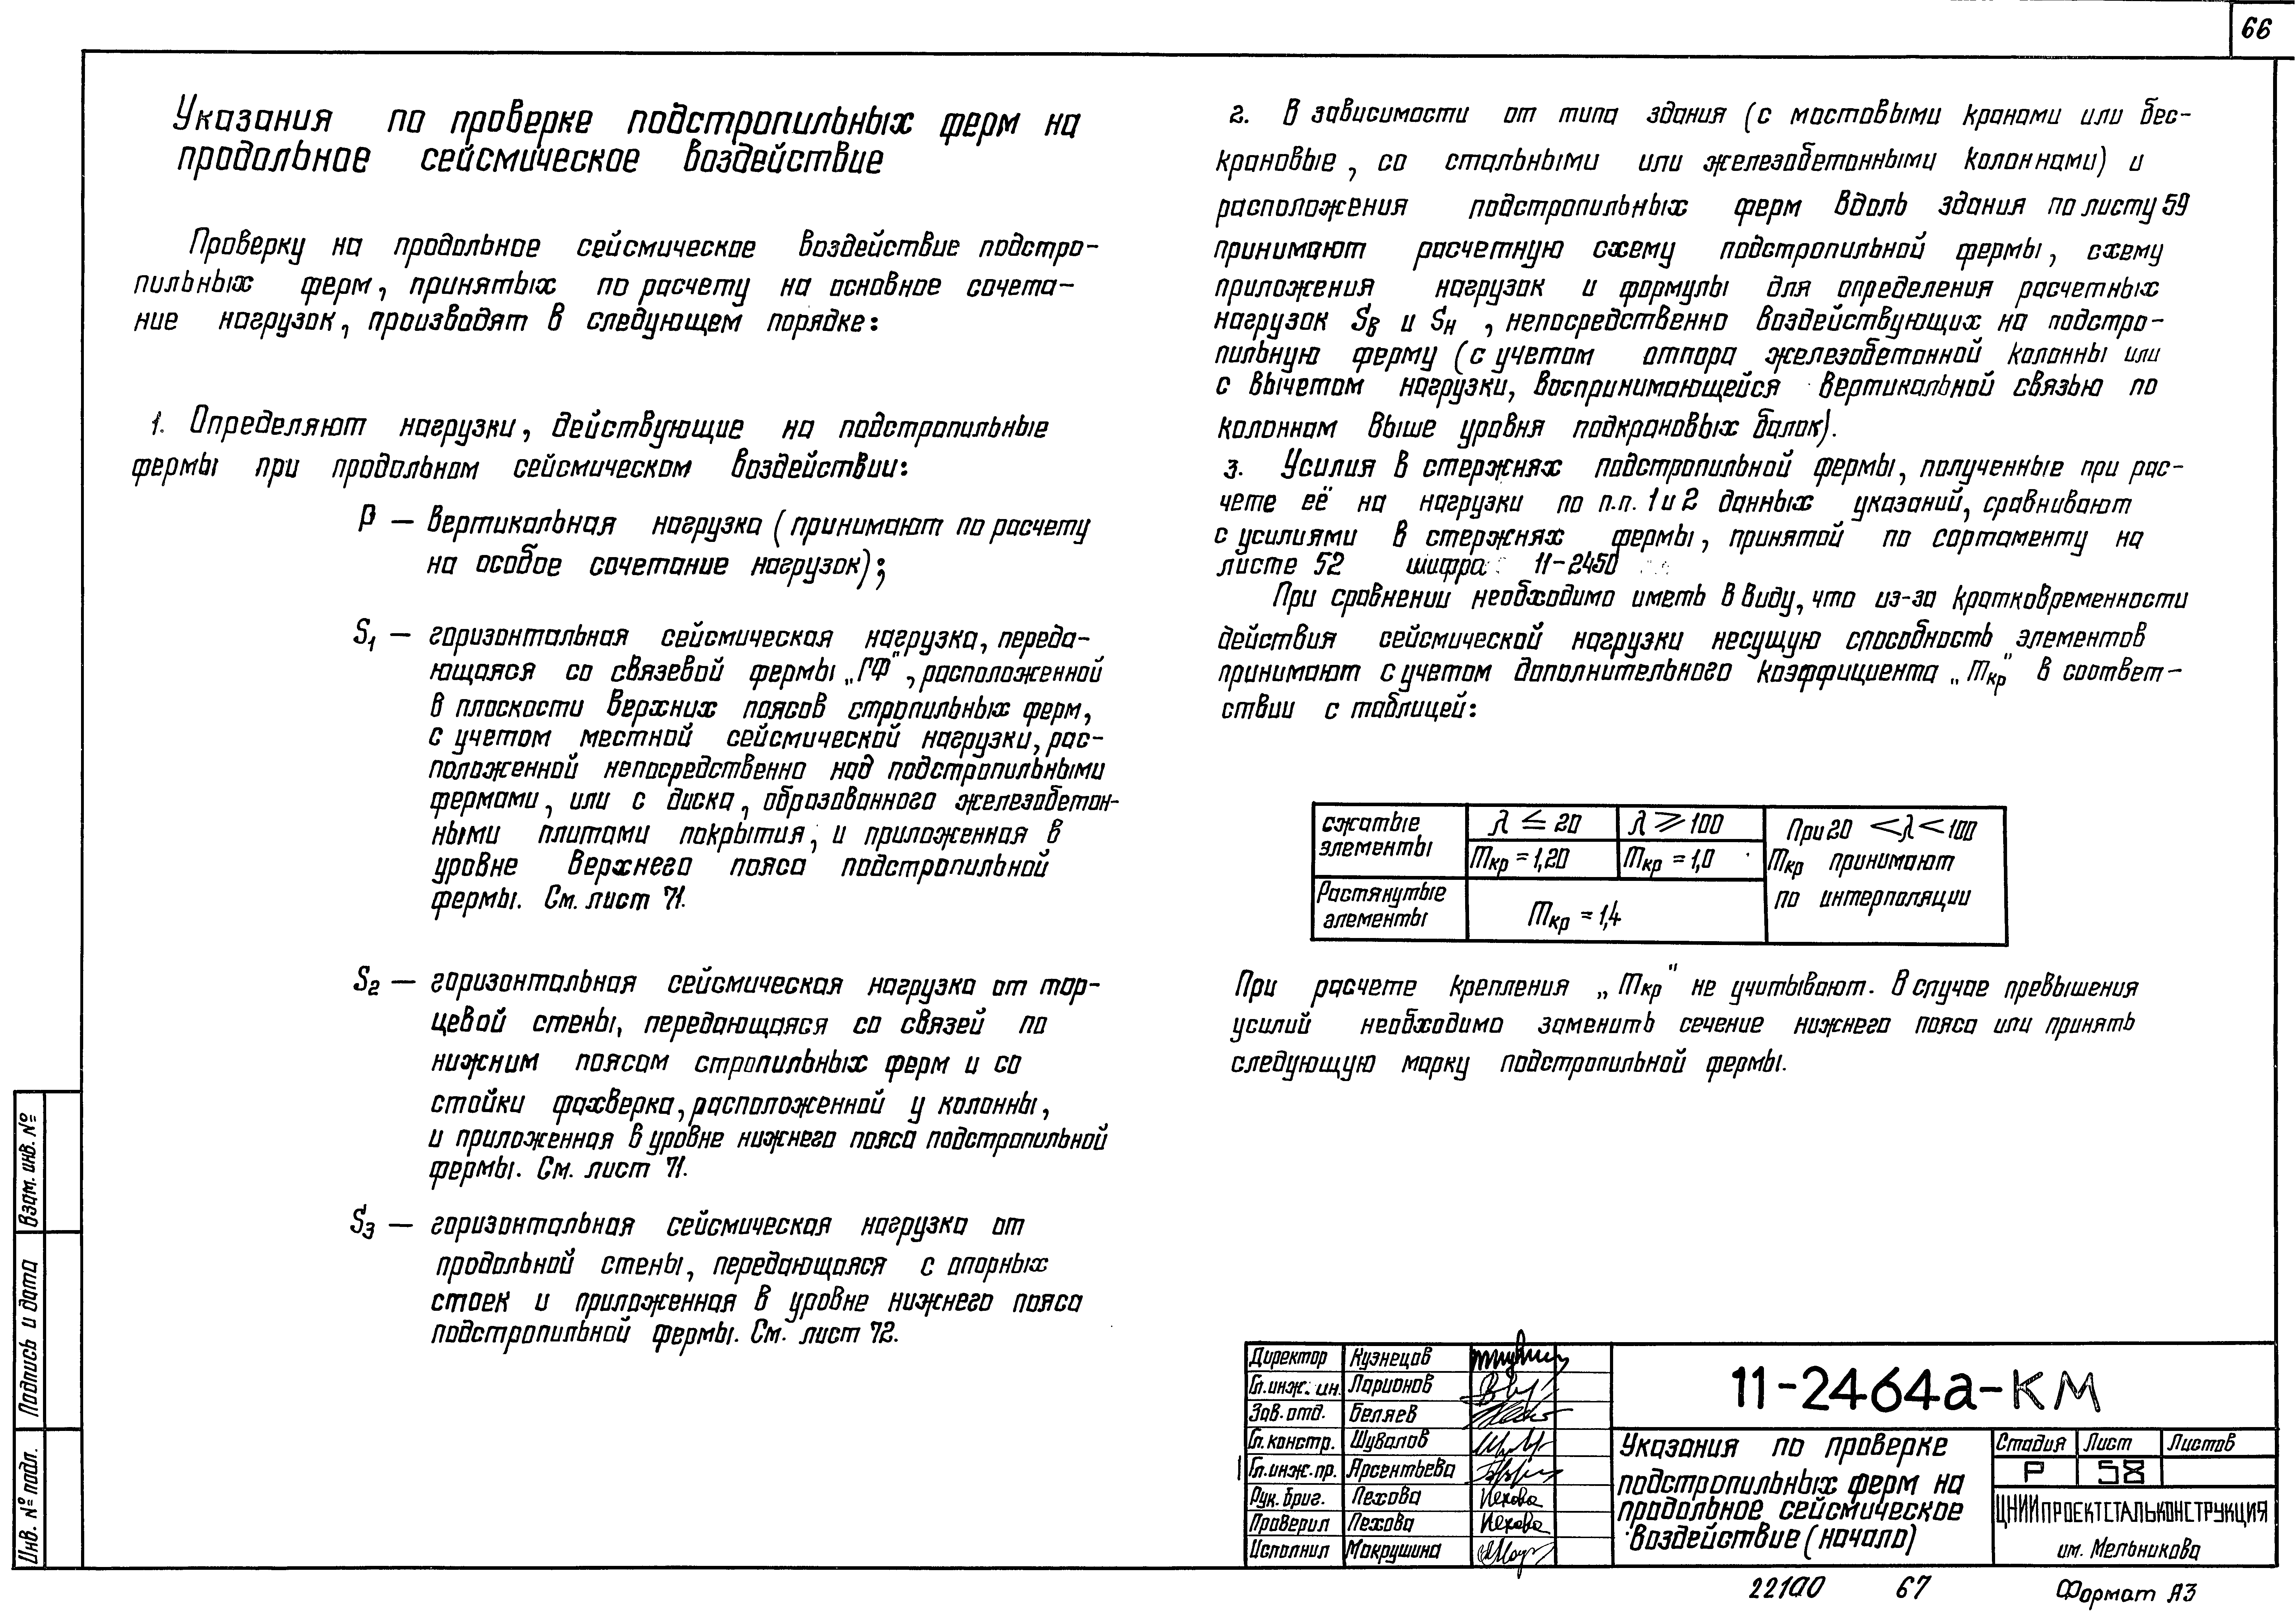 66
Указания по проверке подстропильных ферм на
продольное сейсмическое воздействие
Проверку на продольное сейсмическое воздействие подстро-
пильных ферм, принятых по расчету на основное сочета-
ние нагрузок, производят в следующем порядке:
1. Определяют нагрузки, действующие на подстропильные
фермы при продольном сейсмическом воздействии:
P — вертикальная нагрузка (принимают по расчету
на особое сочетание нагрузок);
S1 — горизонтальная сейсмическая нагрузка, переда-
ющаяся со связевой фермы „ГФ", расположенной
в плоскости верхних поясов стропильных ферм,
с учетом местной сейсмической нагрузки, рас-
положенной непосредственно над подстропильными
фермами, или с диска, образованного железобетон-
ными плитами покрытия, и приложенная в
уровне верхнего пояса подстропильной
фермы. См. лист 71.
S2 — горизонтальная сейсмическая нагрузка от тор-
цевой стены, передающаяся со связей по
нижним поясам стропильных ферм и со
стойки фахверка, расположенной у колонны,
и приложенная в уровне нижнего пояса подстропильной
фермы. См. лист 71.
S3 — горизонтальная сейсмическая нагрузка от
продольной стены, передающаяся с опорных
стоек и приложенная в уровне нижнего пояса
подстропильной фермы. См. лист 72.
2. В зависимости от типа здания (с мостовыми кранами или бес-
крановые, со стальными или железобетонными колоннами) и
расположения подстропильных ферм вдоль здания по листу 59
принимают расчетную схему подстропильной фермы, схему
приложения нагрузок и формулы для определения расчетных
нагрузок Sв и Sн, непосредственно воздействующих на подстро-
пильную ферму (с учетом отпора железобетонной колонны или
с вычетом нагрузки, воспринимающейся вертикальной связью по
колоннам выше уровня подкрановых балок).
3. Усилия в стержнях подстропильной фермы, полученные при рас-
чете её на нагрузки по п.п. 1 и 2 данных указаний, сравнивают
с усилиями в стержнях фермы, принятой по сортаменту на
листе 52 шифра 11-2450
При сравнении необходимо иметь в виду, что из-за кратковременности
действия сейсмической нагрузки несущую способность элементов
принимают с учетом дополнительного коэффициента „mкр" в соответ-
ствии с таблицей:
сжатые элементы
λ ≤ 20
λ ⩾ 100
mкр = 1,20
mкр = 1,0
Растянутые элементы
mкр = 1,4
При 20 < λ < 100
mкр принимают
по интерполяции
При расчете крепления „mкр" не учитывают. В случае превышения
усилий необходимо заменить сечение нижнего пояса или принять
следующую марку подстропильной фермы.
Взам. инв. №
Подпись и дата
Инв. № подл.
Директор Кузнецов
Гл. инж. ин. Ларионов
Зав. отд. Беляев
Гл. констр. Шувалов
Гл. инж. пр. Арсентьева
Рук. бриг. Пехова Пехова
Проверил Пехова Пехова
Исполнил Мокрушина
11-2464а-КМ
Указания по проверке
подстропильных ферм на
продольное сейсмическое
воздействие (начало)
Стадия Лист Листов
Р 58
ЦНИИПРОЕКТСТАЛЬКОНСТРУКЦИЯ
им. Мельникова
22100 67 Формат А3